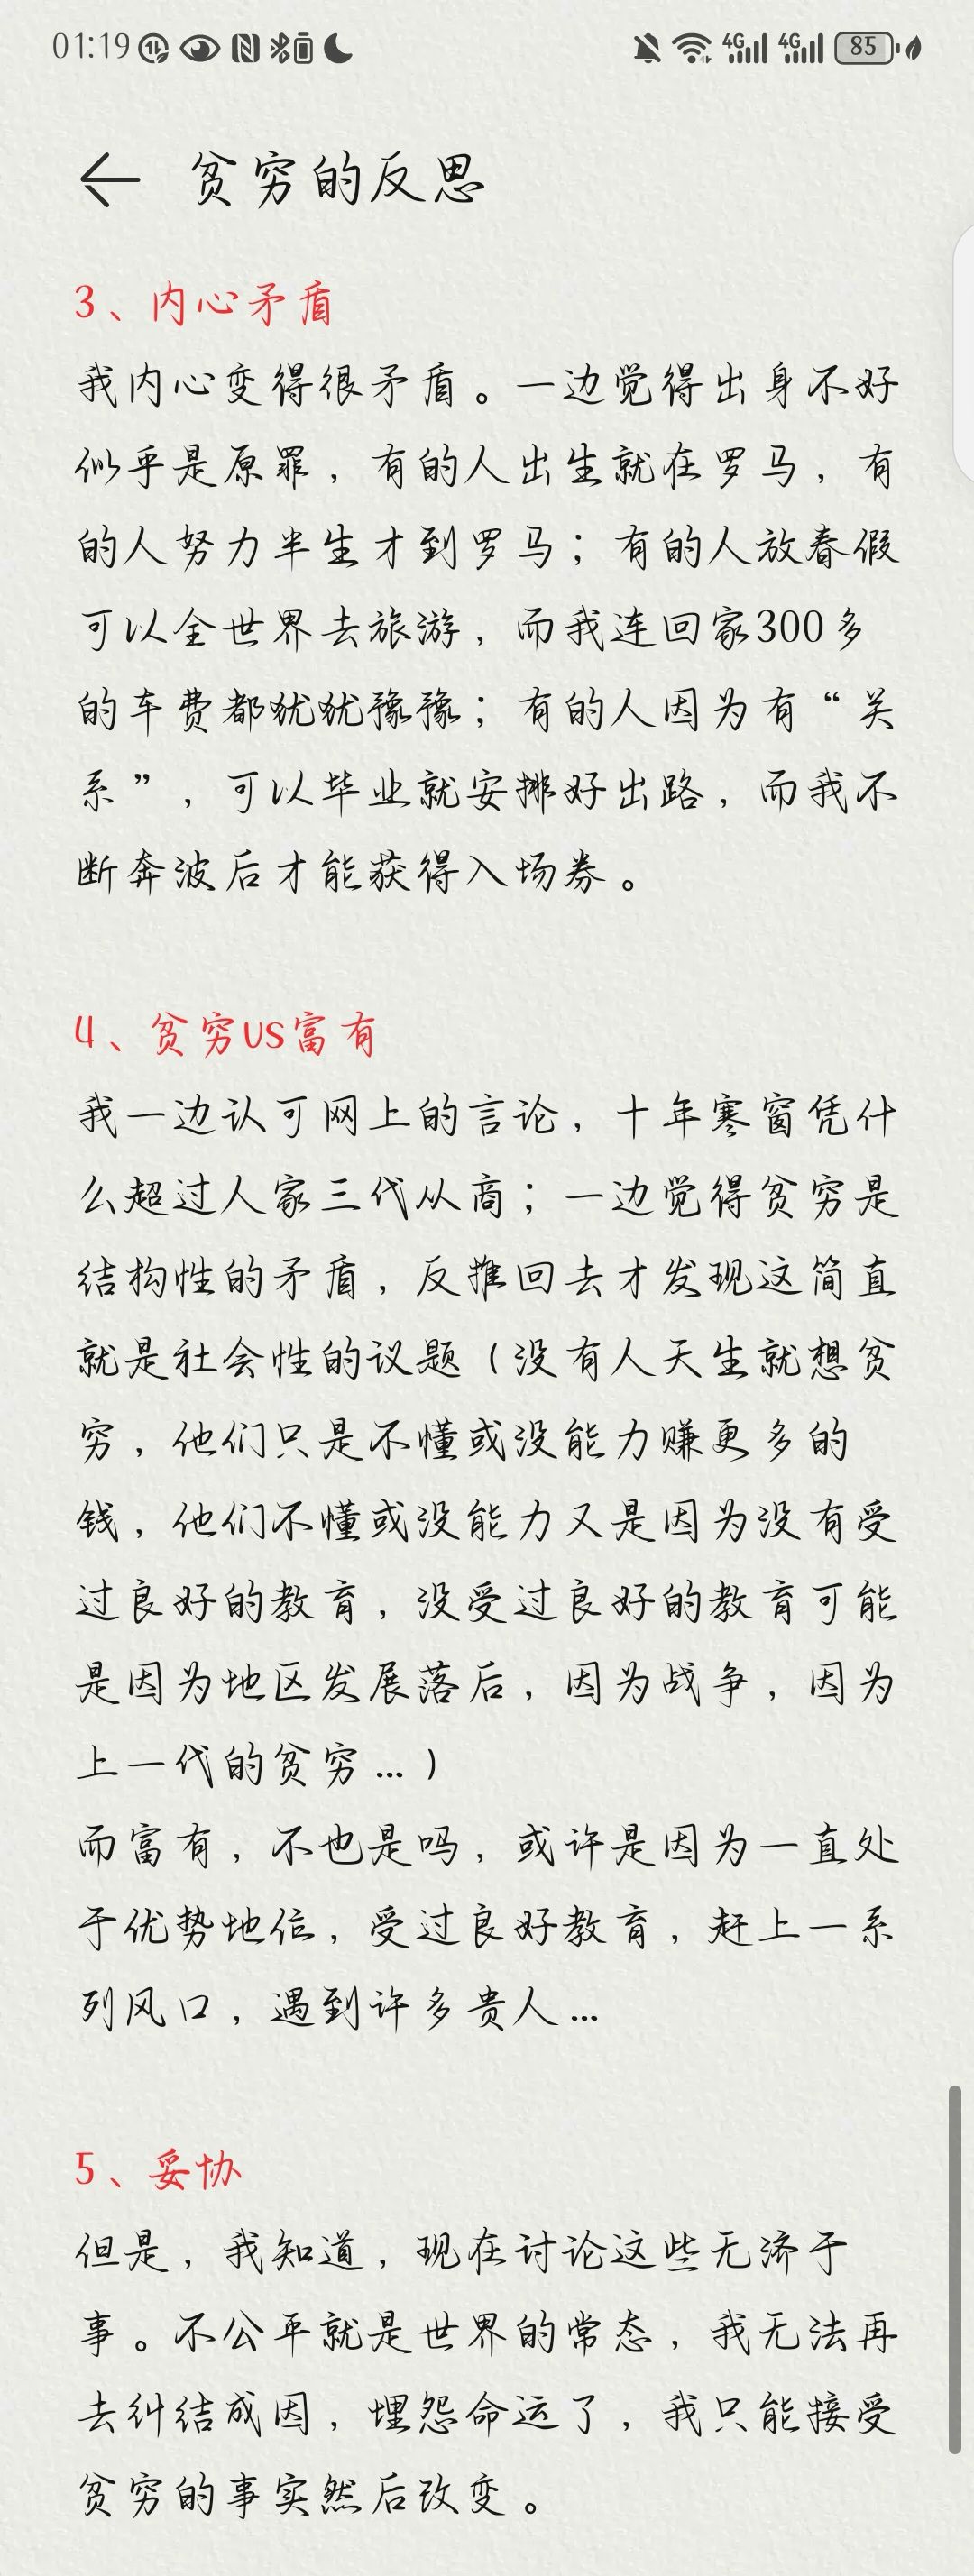 01:19
4G 4G 85
贫穷的反思
3、内心矛盾
我内心变得很矛盾。一边觉得出身不好
似乎是原罪，有的人出生就在罗马，有
的人努力半生才到罗马；有的人放春假
可以全世界去旅游，而我连回家300多
的车费都犹犹豫豫；有的人因为有“关
系”，可以毕业就安排好出路，而我不
断奔波后才能获得入场券。
4、贫穷VS富有
我一边认可网上的言论，十年寒窗凭什
么超过人家三代从商；一边觉得贫穷是
结构性的矛盾，反推回去才发现这简直
就是社会性的议题（没有人天生就想贫
穷，他们只是不懂或没能力赚更多的
钱，他们不懂或没能力又是因为没有受
过良好的教育，没受过良好的教育可能
是因为地区发展落后，因为战争，因为
上一代的贫穷...）
而富有，不也是吗，或许是因为一直处
于优势地位，受过良好教育，赶上一系
列风口，遇到许多贵人...
5、妥协
但是，我知道，现在讨论这些无济于
事。不公平就是世界的常态，我无法再
去纠结成因，埋怨命运了，我只能接受
贫穷的事实然后改变。